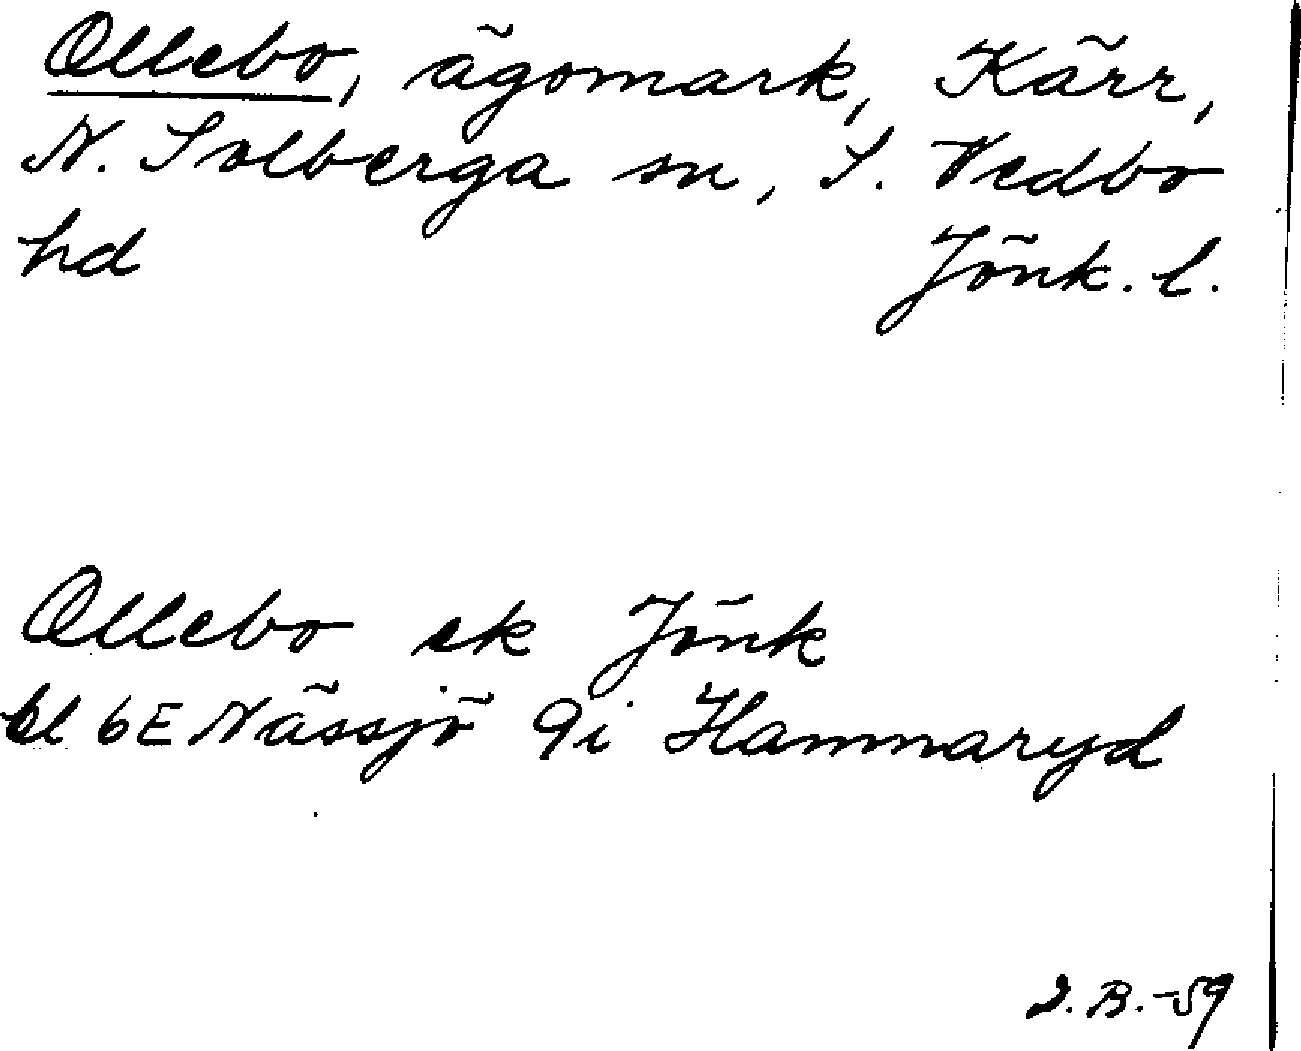 Ollebo, ägomark, Kärr,
N. Solberga sn, S. Vedbo
hd Jönk. l.
Ollebo ek Jönk
bl 6E Nässjö 9i Hammaryd
J.B.-59